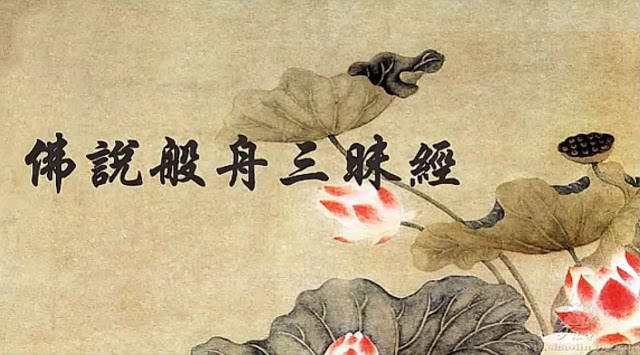 佛說般舟三昧經